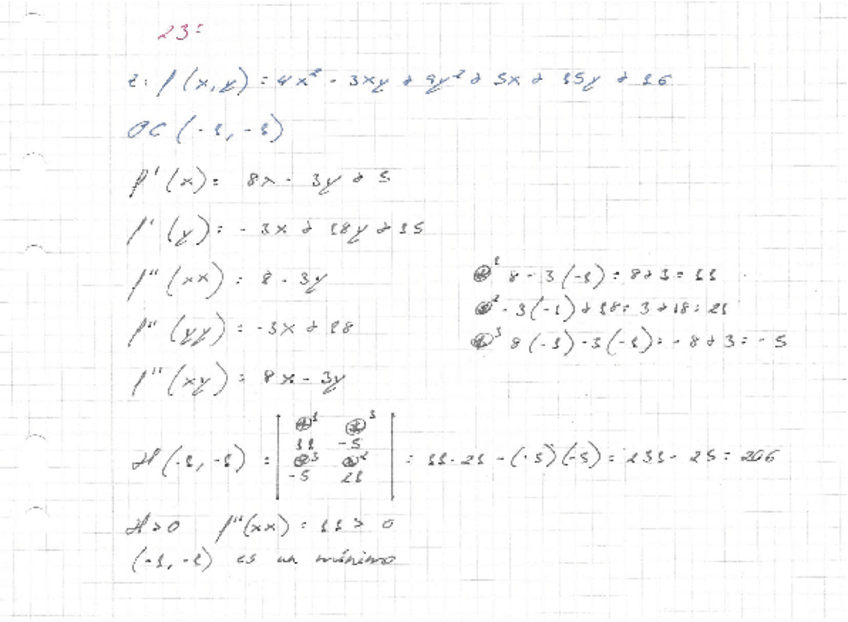 23:
z = f(x,y) = 4x² - 3xy + 9y² + 5x + 15y + 16
PC (-1, -1)
f'(x) = 8x - 3y + 5
f'(y) = -3x + 18y + 15
f''(xx) = 8 - 3y
f''(yy) = -3x + 18
f''(xy) = 8x - 3y
⊛¹ 8 - 3(-1) = 8+3 = 11
⊛² -3(-1)+18 = 3+18 = 21
⊛³ 8(-1)-3(-1) = -8+3 = -5
⊛¹ ⊛³
11 -5
H(-1, -1) = | ⊛³ ⊛² | = 11·21 - (-5)(-5) = 231 - 25 = 206
-5 21
H>0 f''(xx) = 11 > 0
(-1, -1) es un mínimo